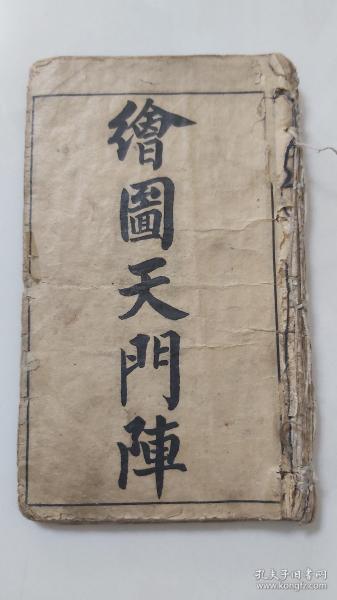 繪圖天門陣
孔夫子旧书网
www.kongfz.com